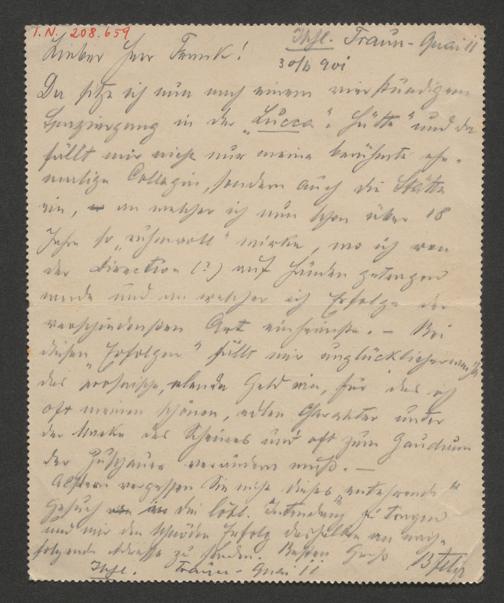 I.N. 208.659
Ischl. Traun-Quai 11
Lieber Herr Frank!
30/6 901
Da sitze ich nun nach einem vierstündigen
Spaziergang in der „Lucca" Hütte" und da
fällt mir nicht nur meine berühmte ehe-
malige Collegin, sondern auch die Stätte
ein, an welcher ich nun schon über 18
Jahre so „ruhmvoll" wirke, wo ich von
der Direction (?) auf Händen getragen
werde und an welcher ich Erfolge der
verschiedensten Art einheimste. – Bei
diesen „Erfolgen" fällt mir unglücklicherweise
das prosaische, elende Geld ein, für das ich
oft meinen schönen, edlen Charakter unter
der Maske des Scheines und oft zum Gaudium
der Zuschauer verändern muß. –
Alsdann vergessen Sie nicht dieses entehrende
Gesuch der löbl. Intendanz zu
und mir den schnöden Erfolg desselben an nach-
folgende Adresse zu senden. Besten Gruß
Ischl. Traun-Quai 11 B Felix